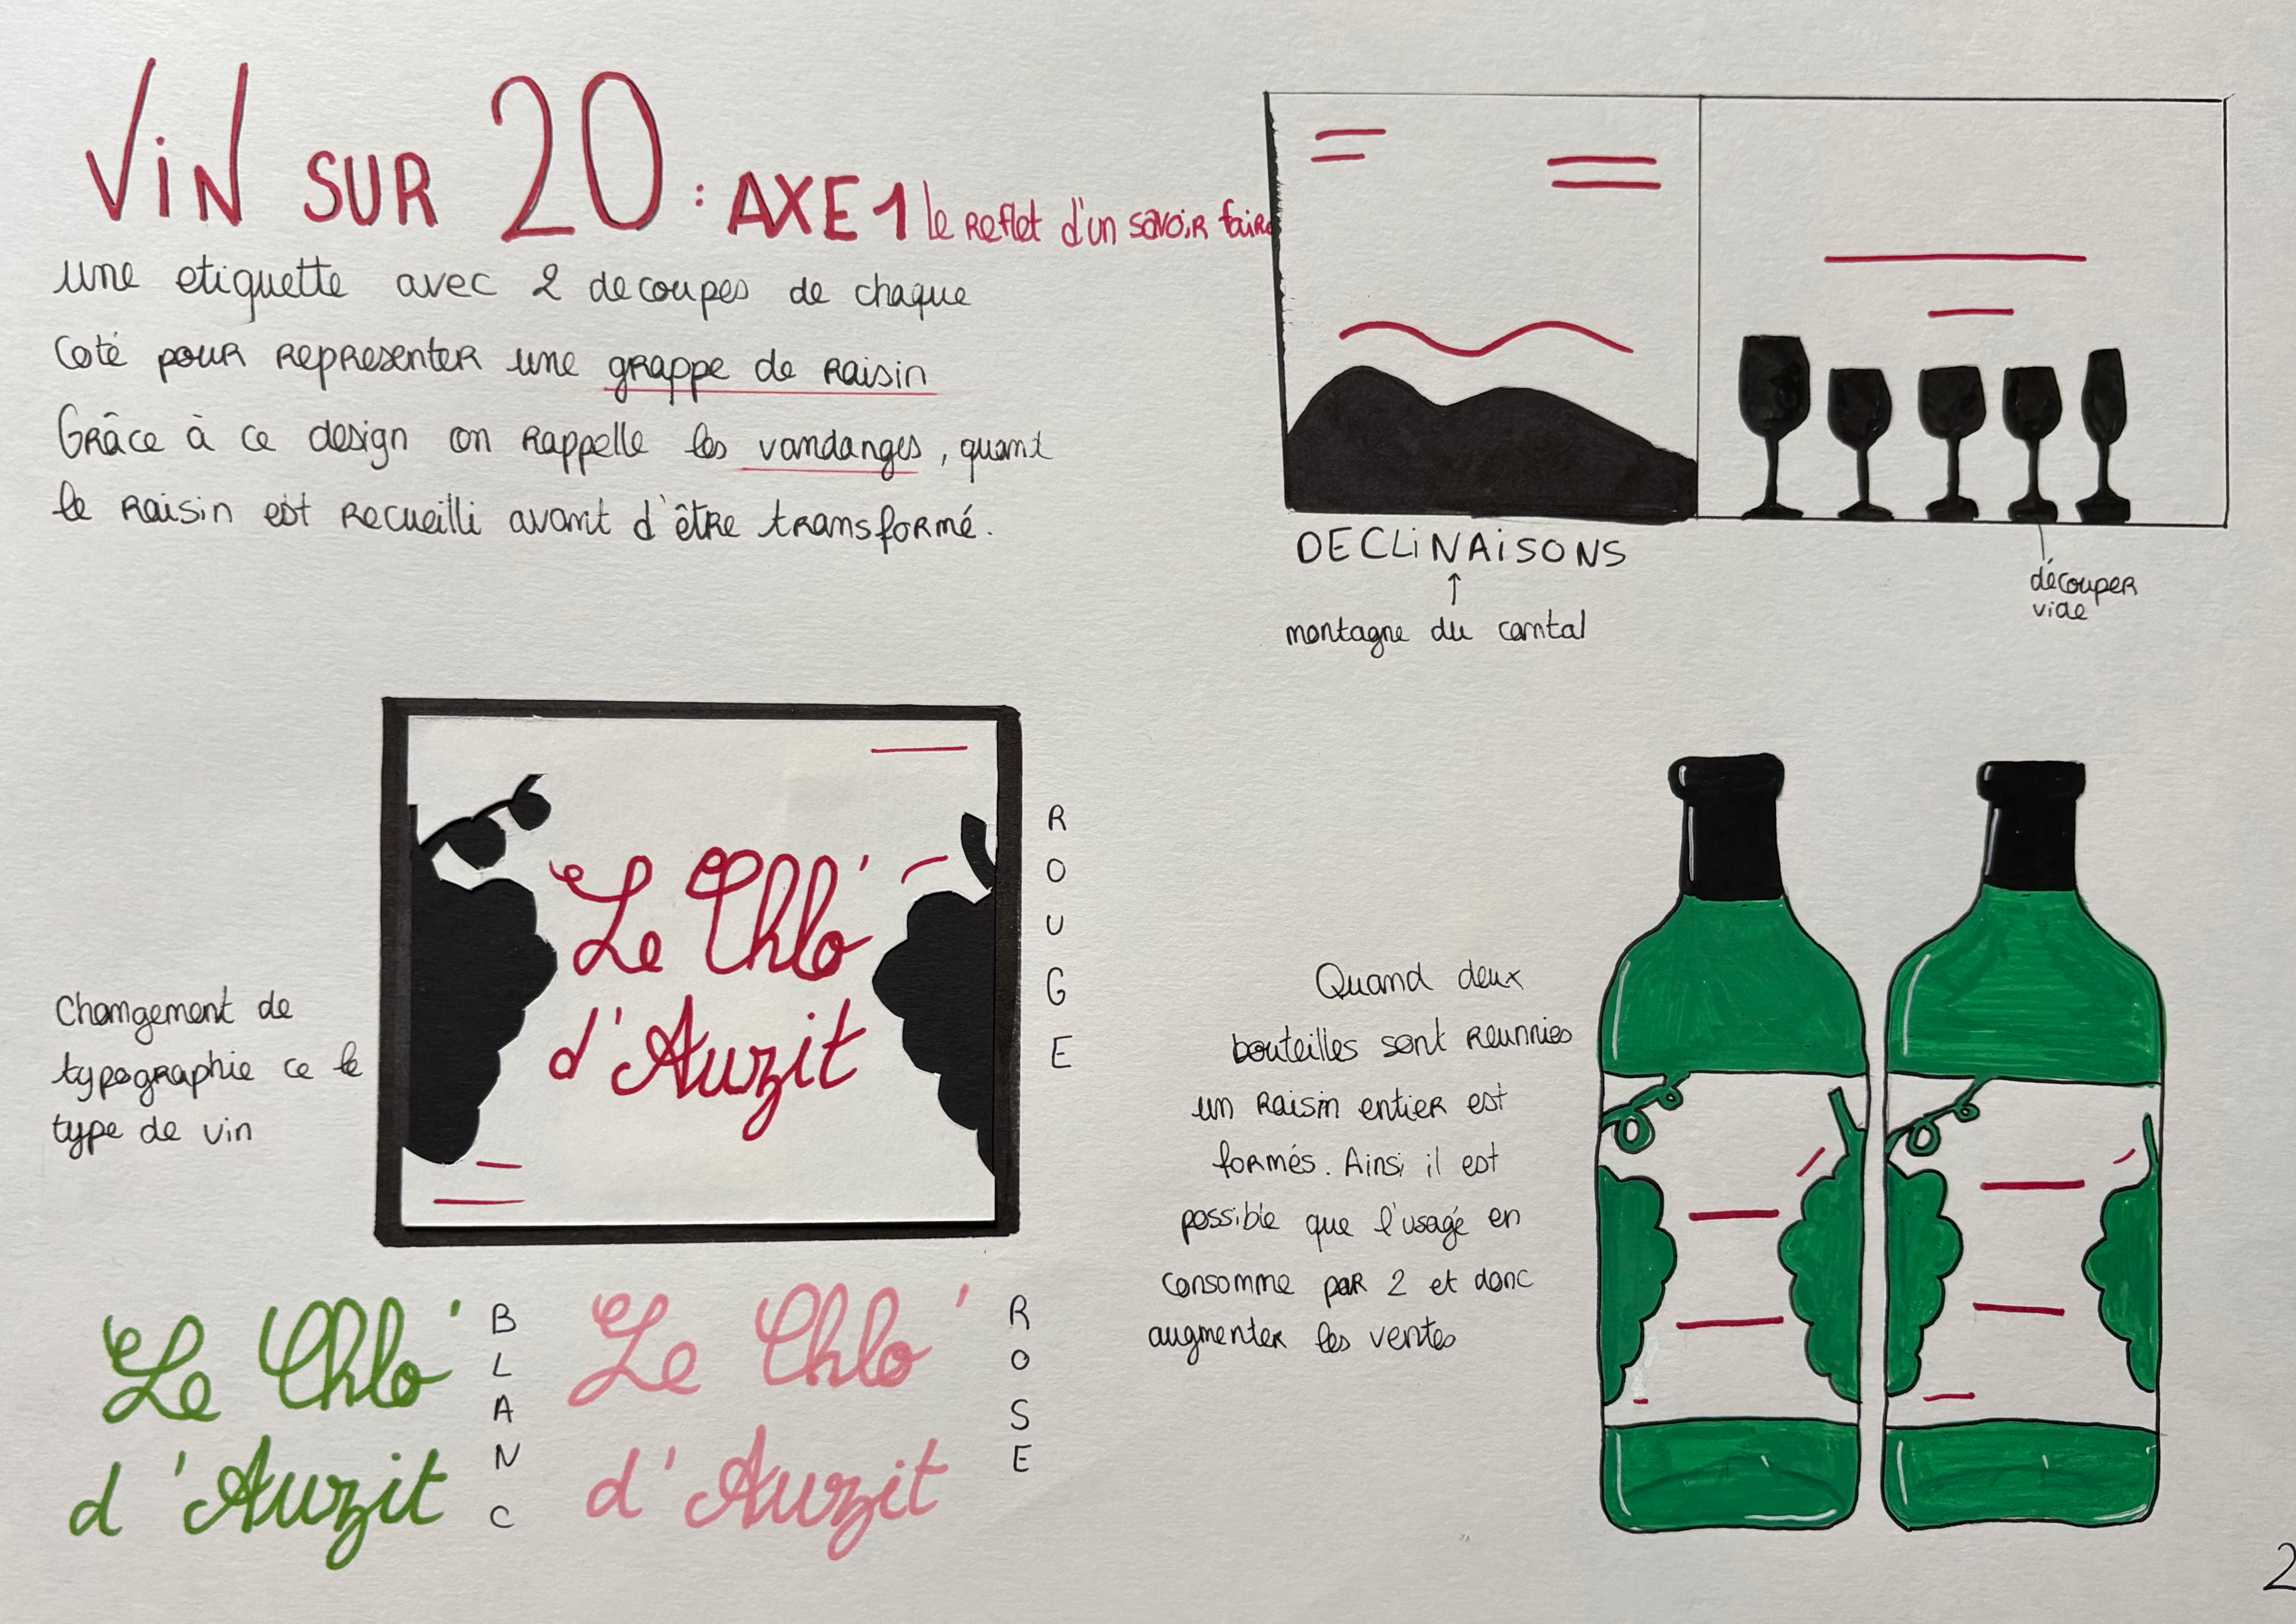 ViN SUR 20 : AXE 1 le reflet d'un savoir faire
une etiquette avec 2 decoupes de chaque
coté pour representer une grappe de raisin
Grâce à ce design on rappelle les vandanges, quant
le raisin est recueilli avant d'être transformé.
DECLiNAiSONS
montagne du cantal
découper
vide
Changement de
typographie ce le
type de vin
Le Chlo'
d'Auzit
ROUGE
Le Chlo'
d'Auzit
BLANC
Le Chlo'
d'Auzit
ROSE
Quand deux
bouteilles sont reunnies
un raisin entier est
formés. Ainsi il est
possible que l'usagé en
consomme par 2 et donc
augmenter les ventes
2